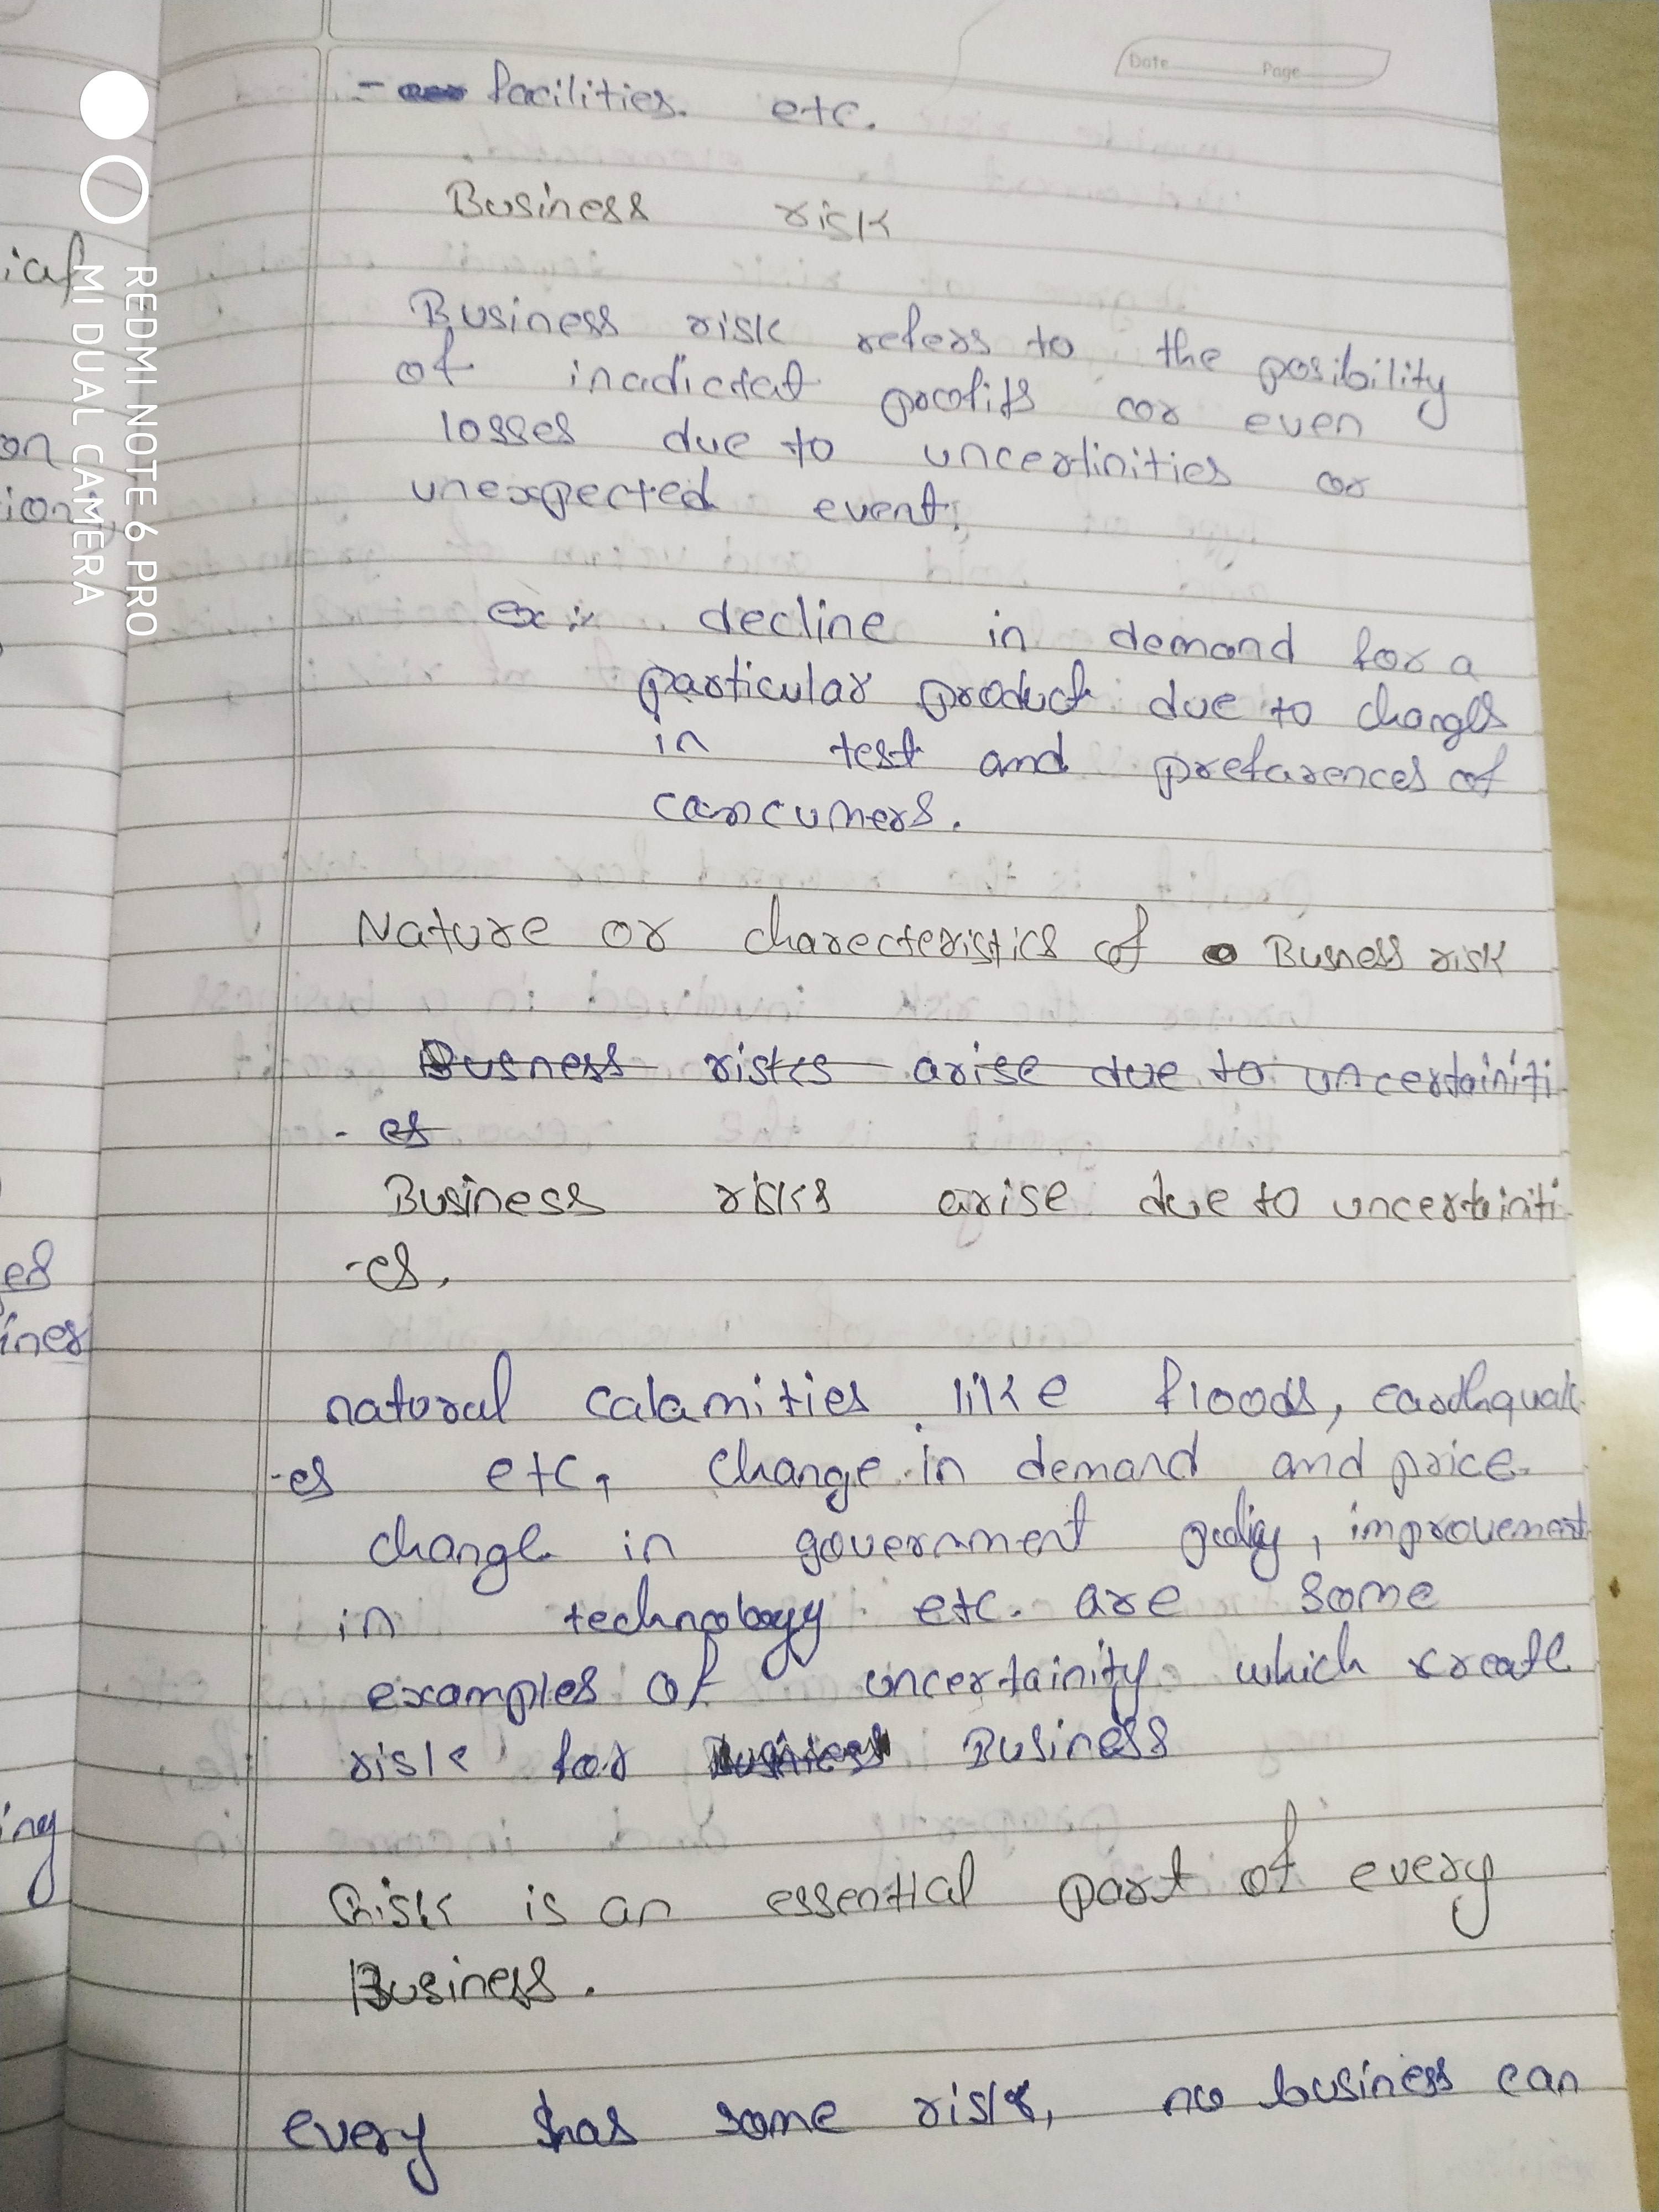 Date Page
- facilities. etc.
Business risk
Business risk refers to the posibility
of inadictat profits or even
losses due to uncertinities or
unexpected event.
ex :- decline in demand for a
particular product due to changes
in test and prefarences of
concumers.
Nature or charecteristics of Busness risk
Busness risks arise due to uncertainiti
- es
Business risks arise due to uncertainiti
-es.
natural calamities like floods, earthquak
-es etc, change in demand and price.
change in government policy, improvement
in technology etc. are some
examples of uncertainity which create
risk for Business
Risk is an essential part of every
Business.
every has some risk, no business can
ial
on
ion
es
ines
ing
REDMI NOTE 6 PRO
MI DUAL CAMERA